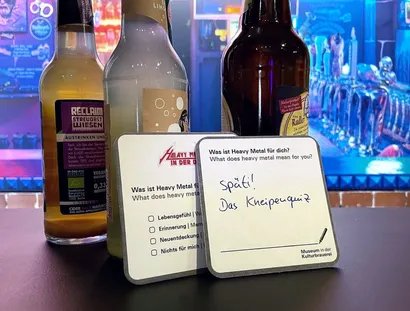 RECLAIM
STREUOBST
WIESEN
0,33
HEAVY METAL
IN DER
Was ist Heavy Metal f
What does heavy metal
Lebensgefühl |
Erinnerung |
Neuentdeckung |
Nichts für mich |
Was ist Heavy Metal für dich?
What does heavy metal mean for you?
Späti!
Das Kneipenquiz
Museum in der
Kulturbrauerei